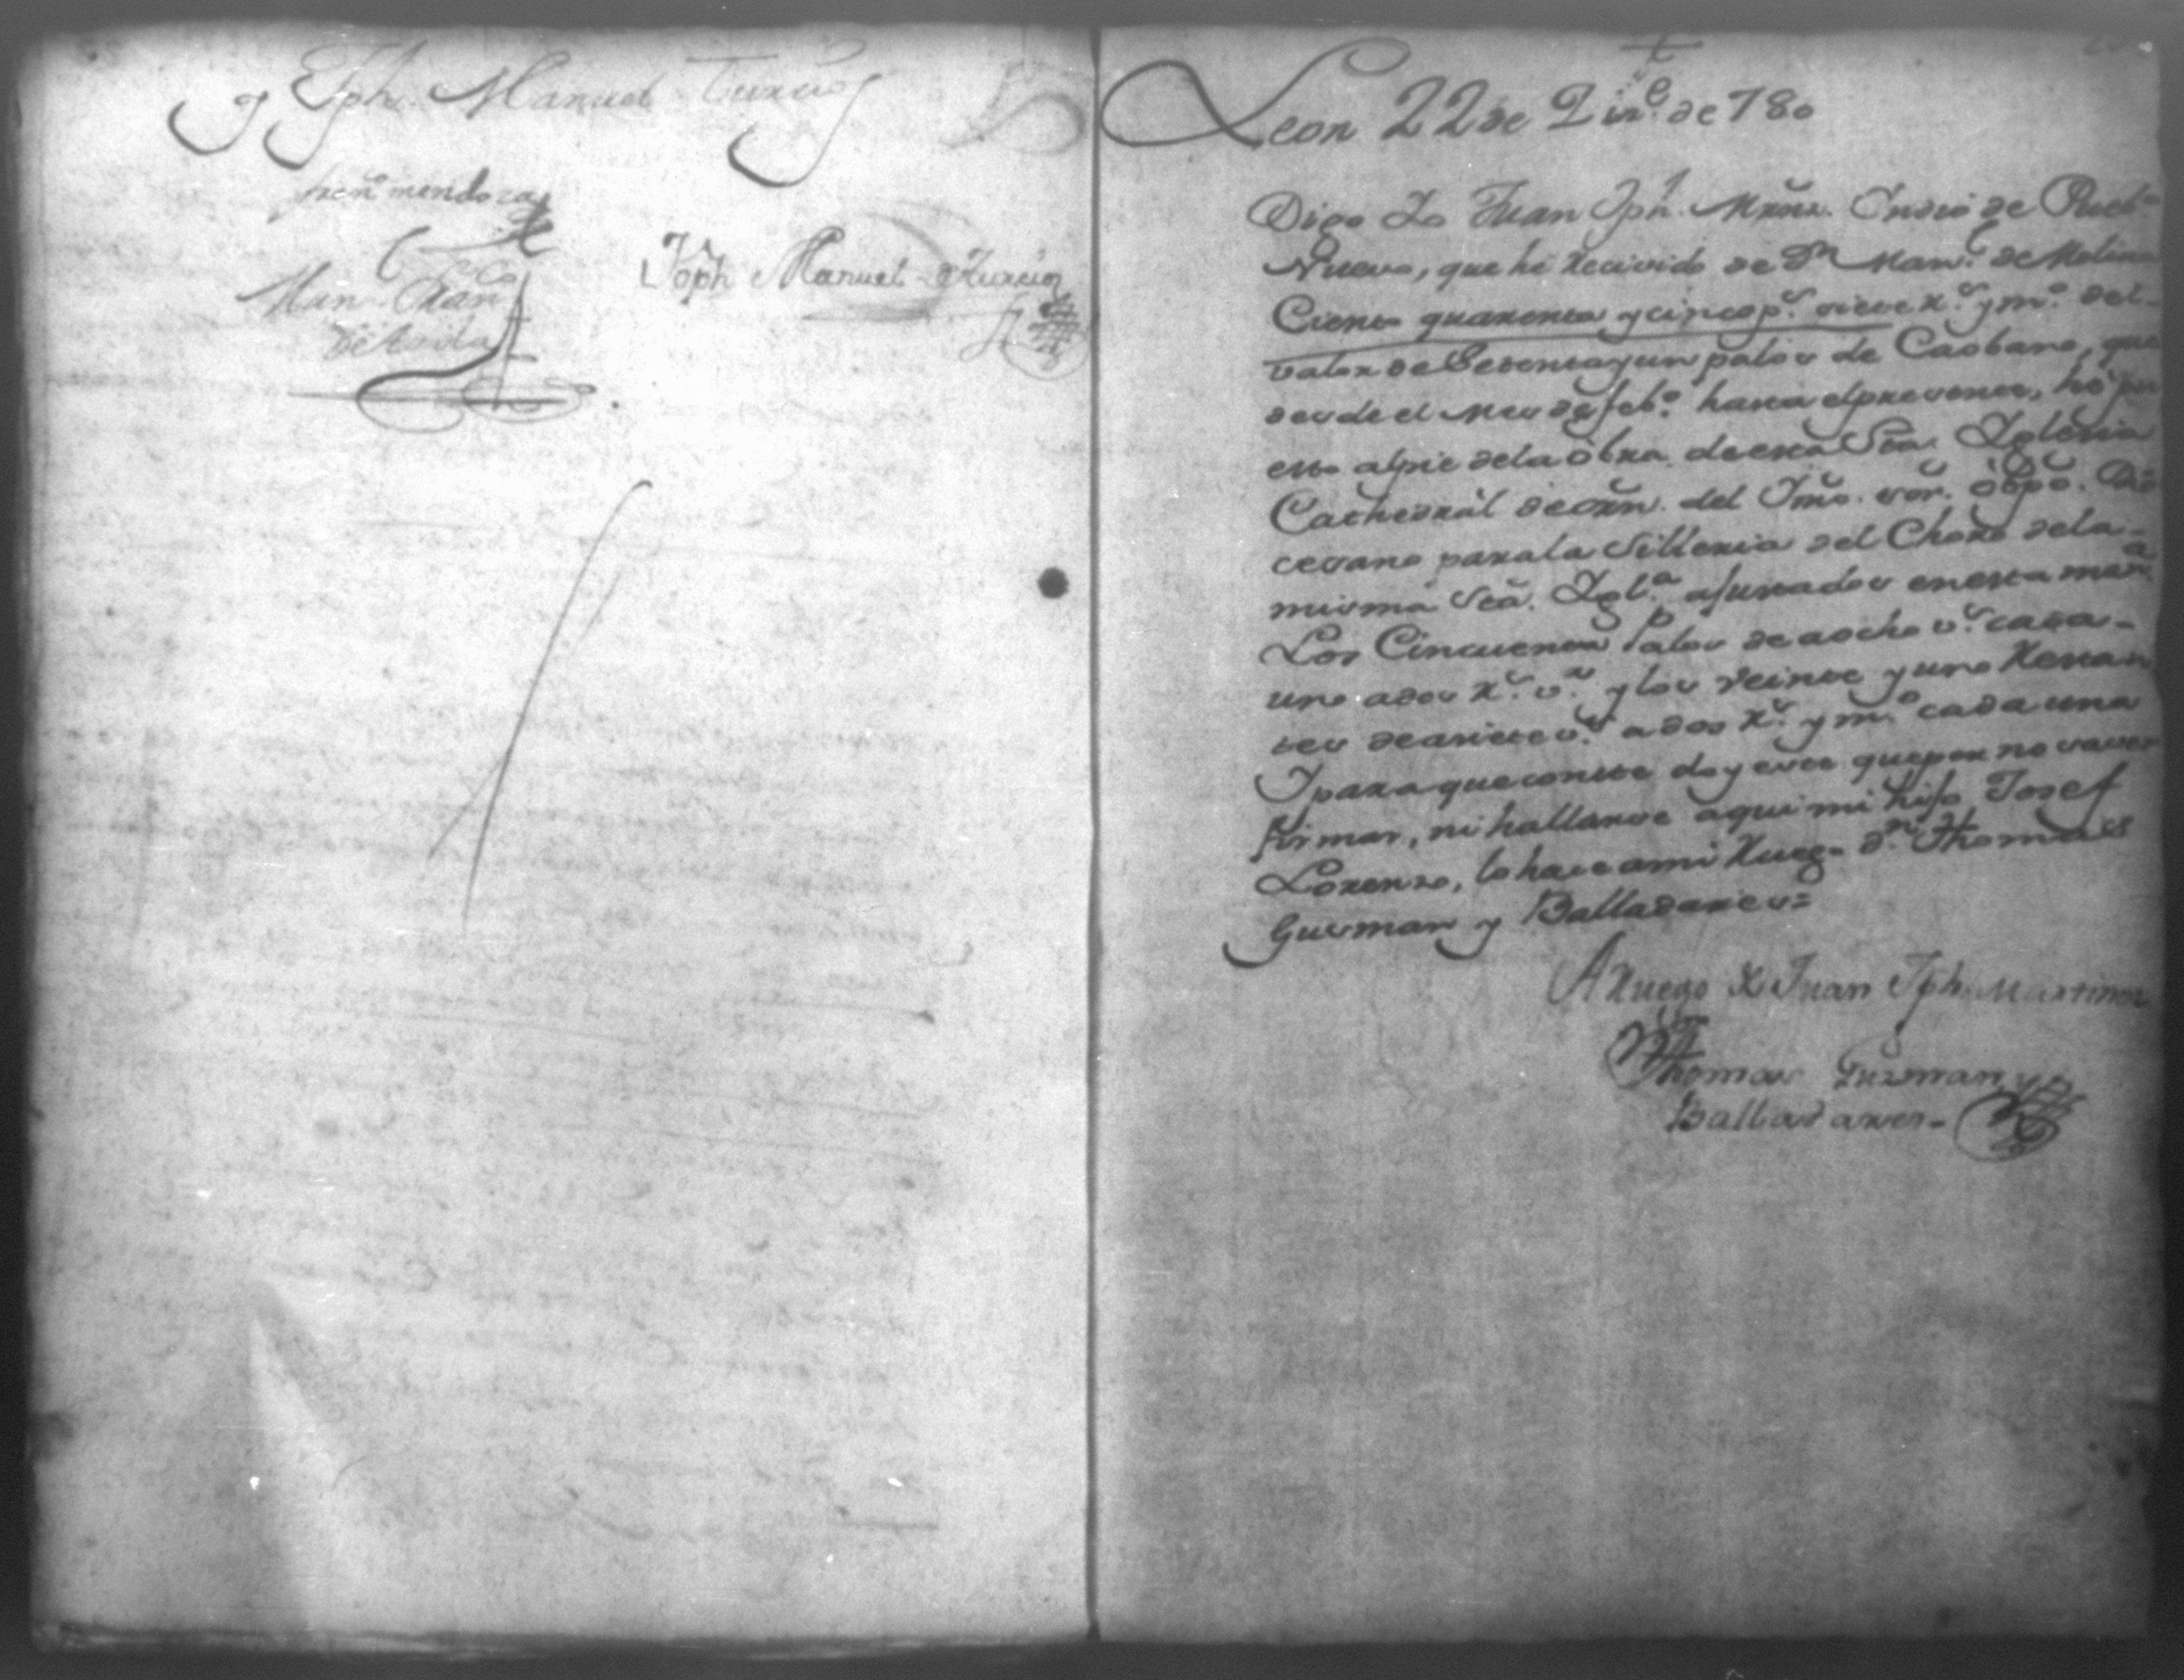 y Jph. Manuel Turcios
fren.º mendoza
Man. Fran.co
de Avila
Joph Manuel Turcios
Leon 22 de Dizre. de 780
Digo Yo Juan Jph. Mrñz. Yndio de Pueb.º
Nuevo, que hé Recivido de Dn. Man.l de Molina
Ciento quarenta y cinco p.s siete r.s y m.º del
valor de Setenta y un palos de Caobano, que
desde el mes de feb.º hasta el presente, hé pu
esto al pie de la óbra de esta Sta. Yglesia
Cathedral de orñ. del Ymo. sor. obpo. Dio
cesano para la Silleria del Choro de la
misma Sta. Ygl.a ajustados en esta man.a
Los Cincuenta Palos de a ocho v.s cada
uno a dos r.s v.a y los Veinte y uno Restan
tes de a siete v.s a dos r.s y m.º cada una
Y para que conste doy este que por no saver
firmar, ni hallarse aqui mi hijo Josef
Lorenzo, lo hace a mi Ruego Dn. Thomas
Gusman y Balladares=
A Ruego de Juan Jph. Martinez
Thomas Guzman y
Balladares-